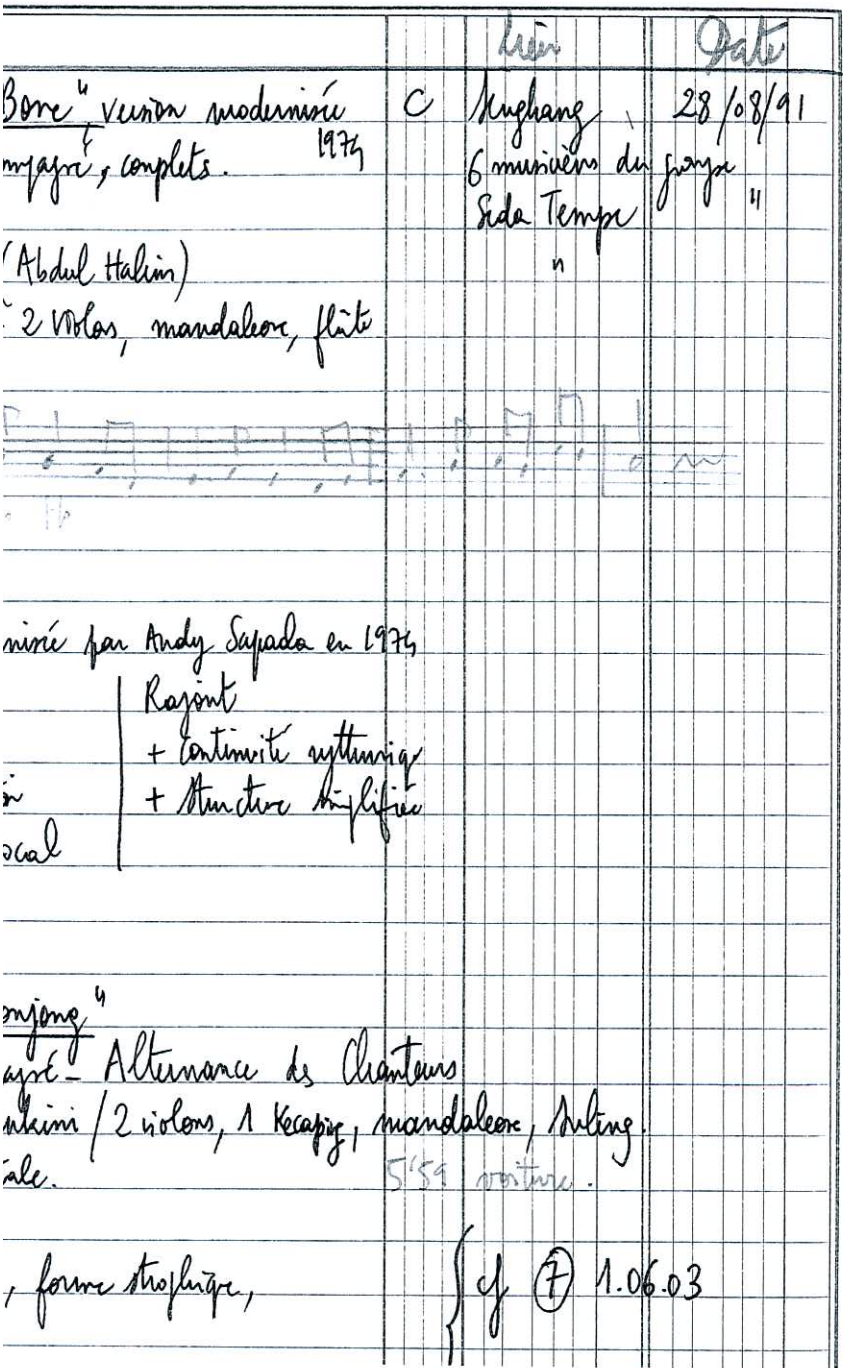 Lieu Date
Bone" version modernisée C 28/08/91
mpagné, couplets. 1974 6 musiciens du groupe
Sida Tempe "
(Abdul Halim) "
2 violons, mandaleone, flûte
nisée par Andy Sapada en 1974
Rajout
+ Continuité rythmiq
+ Structure simplifiée
ocal
onjong"
agné - Alternance des Chanteurs
nkini / 2 violons, 1 Kecaping, mandaleone, Suling.
ale. 5'59 voiture.
, forme strophique, cf 7 1.06.03